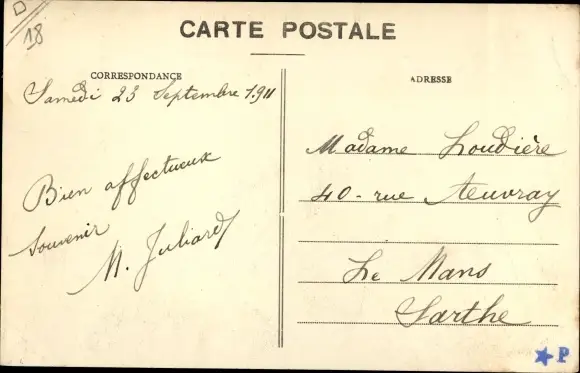 18
CARTE POSTALE
CORRESPONDANCE
Samedi 23 Septembre 1911
Bien affectueux
souvenir
M. Juliard
ADRESSE
Madame Loudière
40 - rue Auvray
Le Mans
Sarthe
P